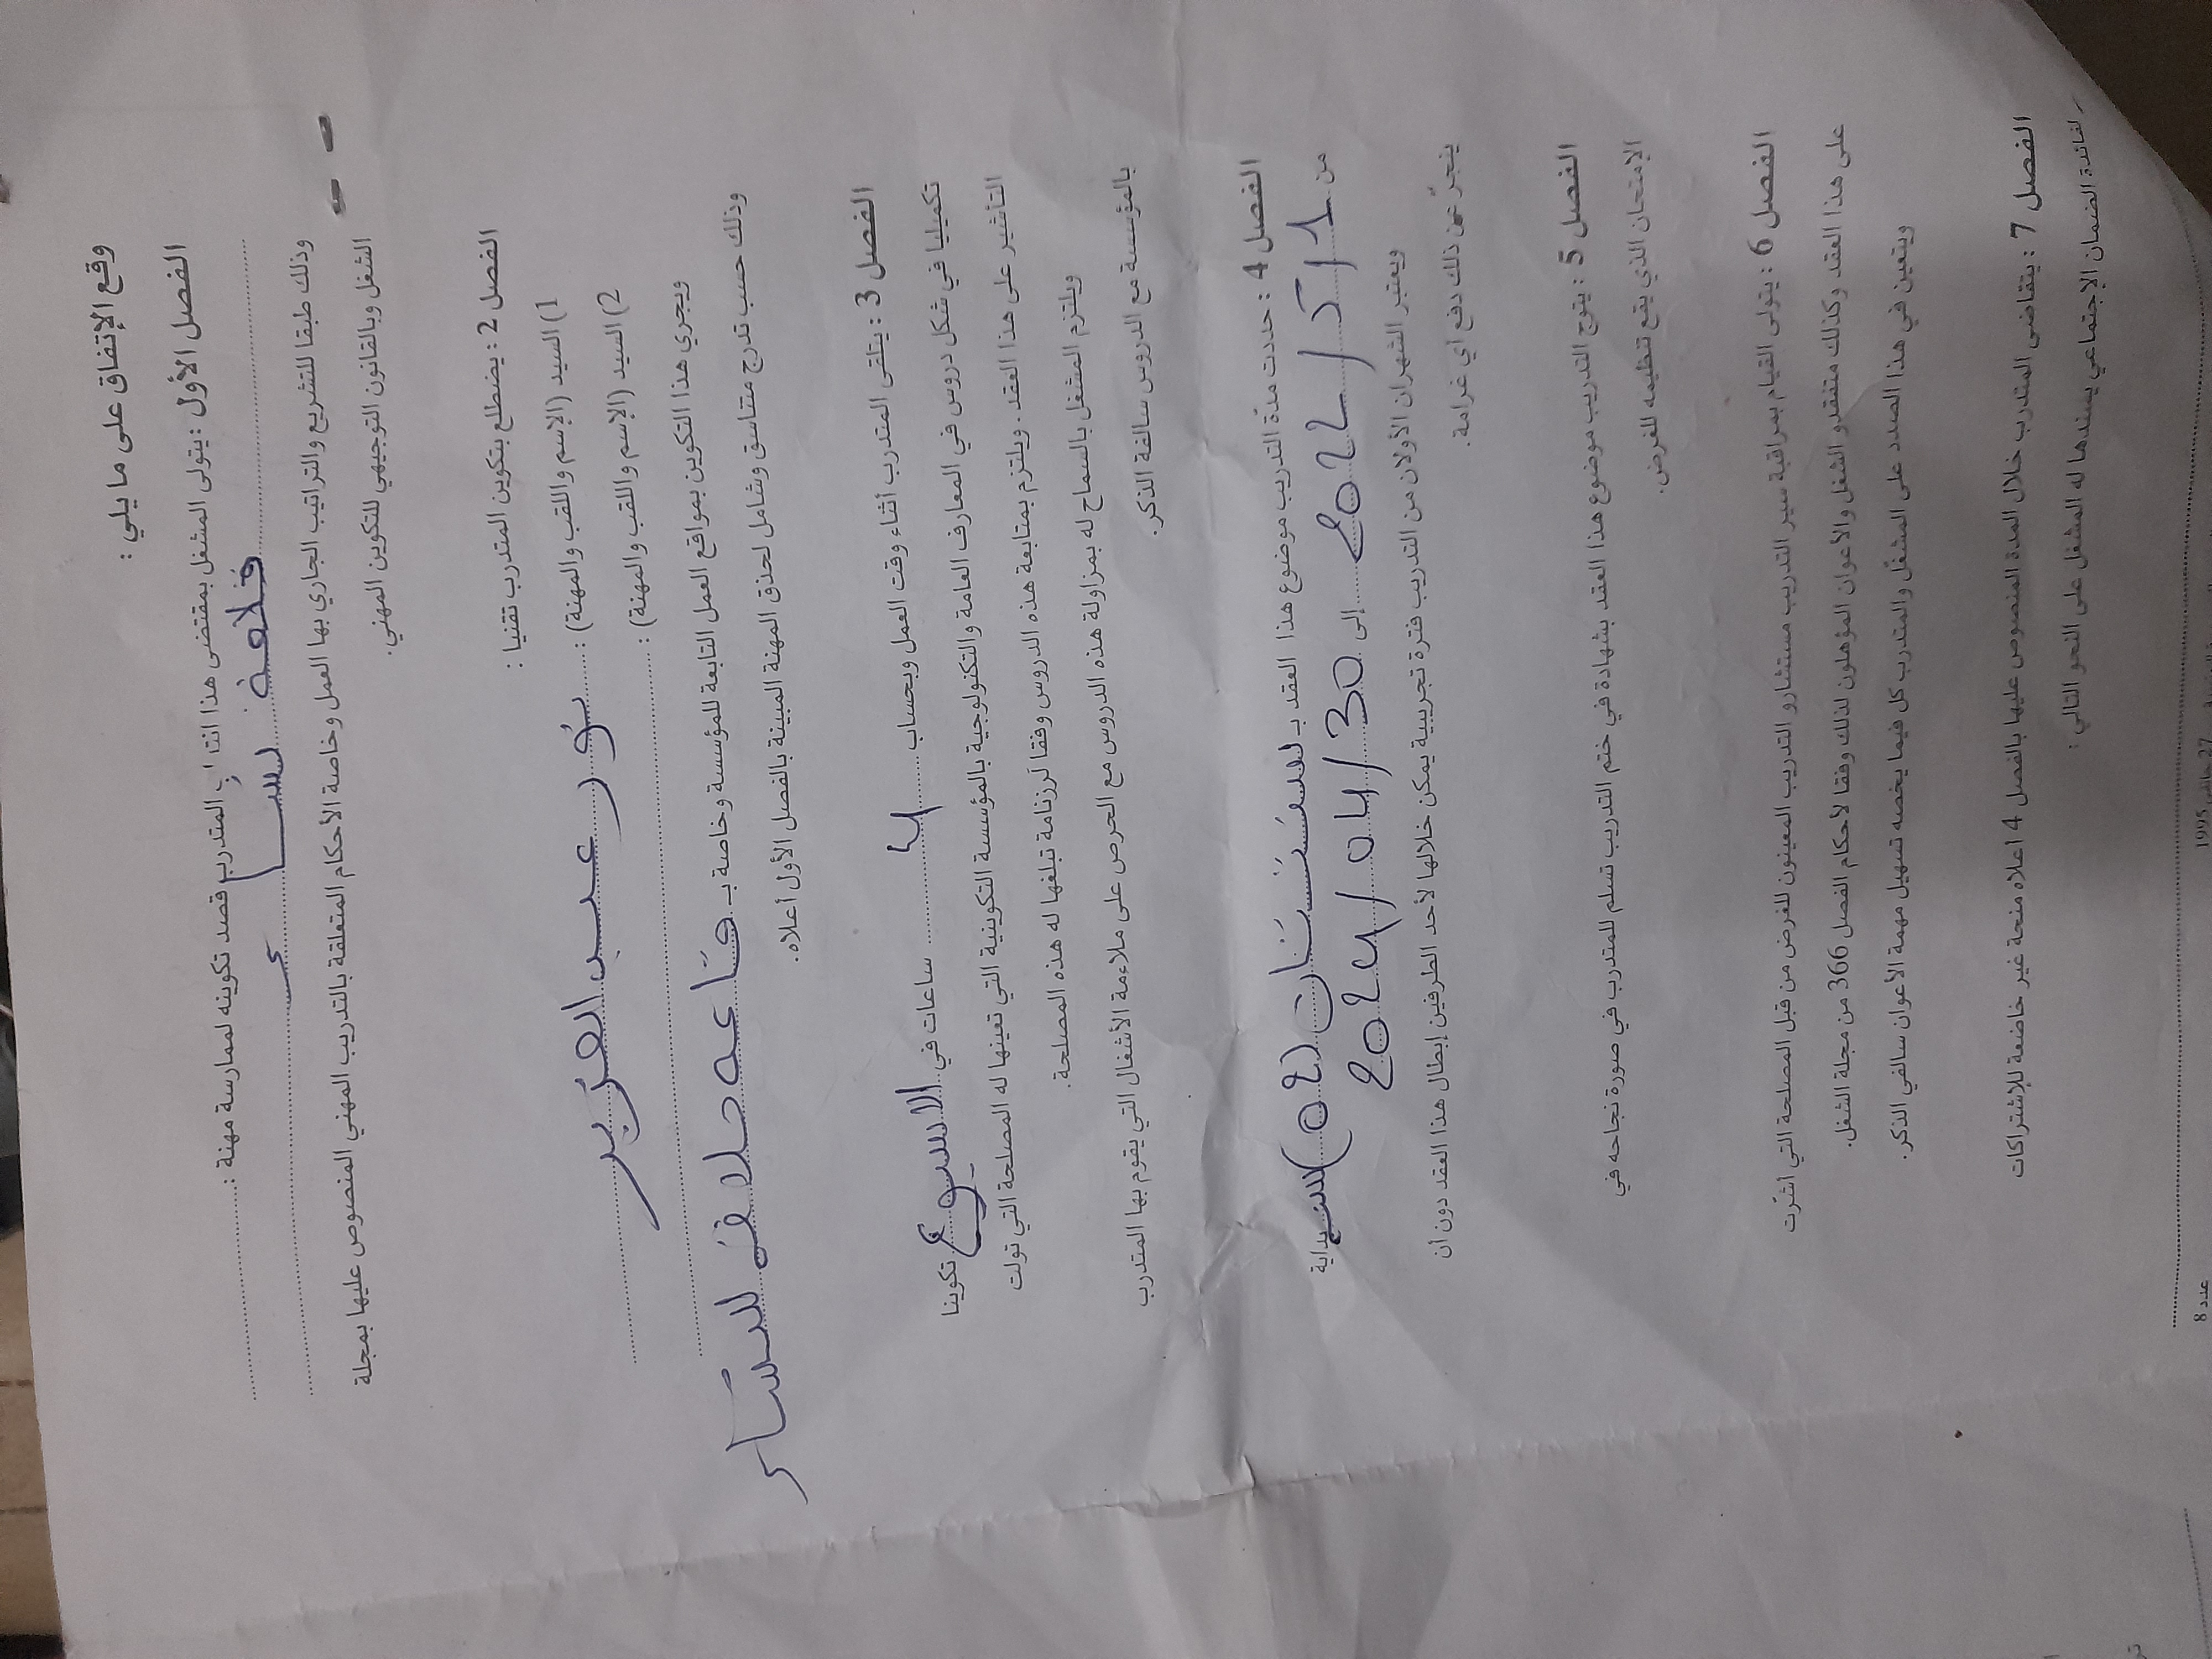 وقع الإتفاق على ما يلي :
الفصل الأول : يتولى المشغل بمقتضى هذا انتداب المتدرب قصد تكوينه لممارسة مهنة :
حلاقة نساء
وذلك طبقا للتشريع والتراتيب الجاري بها العمل وخاصة الأحكام المتعلقة بالتدريب المهني المنصوص عليها بمجلة
الشغل وبالقانون التوجيهي للتكوين المهني.
الفصل 2 : يضطلع بتكوين المتدرب تقنيا :
1) السيد (الإسم واللقب والمهنة) : نور عبد العزيز
2) السيد (الإسم واللقب والمهنة) :
ويجري هذا التكوين بمواقع العمل التابعة للمؤسسة وخاصة بـ قاعة حلاقة للنساء
وذلك حسب تدرج متناسق وشامل لحذق المهنة المبينة بالفصل الأول أعلاه.
الفصل 3 : يتلقى المتدرب أثناء وقت العمل وبحساب 4 ساعات في الاسبوع تكوينا
تكميليا في شكل دروس في المعارف العامة والتكنولوجية بالمؤسسة التكوينية التي تعينها له المصلحة التي تولت
التأشير على هذا العقد. ويلتزم بمتابعة هذه الدروس وفقا لرزنامة تبلغها له هذه المصلحة.
ويلتزم المشغل بالسماح له بمزاولة هذه الدروس مع الحرص على ملاءمة الأشغال التي يقوم بها المتدرب
بالمؤسسة مع الدروس سالفة الذكر.
الفصل 4 : حددت مدة التدريب موضوع هذا العقد بـ سنتان (02) بداية
من 2022/51/1 إلى 2024/04/30
ويعتبر الشهران الأولان من التدريب فترة تجريبية يمكن خلالها لأحد الطرفين إبطال هذا العقد دون أن
ينجرّ عن ذلك دفع أي غرامة.
الفصل 5 : يتوج التدريب موضوع هذا العقد بشهادة في ختم التدريب تسلم للمتدرب في صورة نجاحه في
الإمتحان الذي يقع تنظيمه للغرض.
الفصل 6 : يتولى القيام بمراقبة سير التدريب مستشارو التدريب المعينون للغرض من قبل المصلحة التي أشّرت
على هذا العقد وكذلك متفقدو الشغل والأعوان المؤهلون لذلك وفقا لأحكام الفصل 366 من مجلة الشغل.
ويتعين في هذا الصدد على المشغّل والمتدرب كل فيما يخصه تسهيل مهمة الأعوان سالفي الذكر.
الفصل 7 : يتقاضى المتدرب خلال المدة المنصوص عليها بالفصل 4 أعلاه منحة غير خاضعة للإشتراكات
لفائدة الضمان الإجتماعي يسندها له المشغل على النحو التالي :
عدد 8
27 جانفي 1995